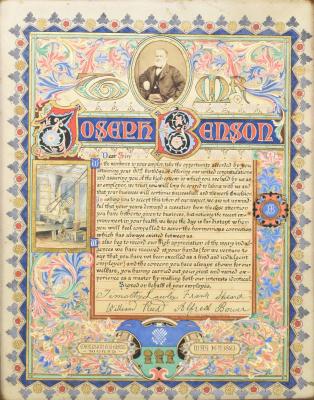 To Mr
Joseph Benson
Dear Sir,
We the workmen in your employ, take the opportunity afforded by you
attaining your birthday of offering our united congratulations
and assuring you of the high esteem in which you are held by us as
an employer, we trust you will long be spared to labour with us and
that your business will continue successful and thrive
In asking you to accept this token of our respect, we are not unmind-
ful that your years demand a cessation from the close attention
you have hitherto given to business, but noticing the recent im-
provement in your health, we hope the day is far distant when
you will feel compelled to sever the harmonious connexion
which has always existed between us.
We also beg to record our high appreciation of the many indul-
gences we have received at your hands (for we workmen to
say that you have ever been excelled as a kind and indulgent
employer) and the concern you have always shewn for our
welfare, you having carried out your great and varied exp-
erience as a master by making both our interests identical.
Signed on behalf of your employés,
Timothy Frank
William Reid Alfred Bower